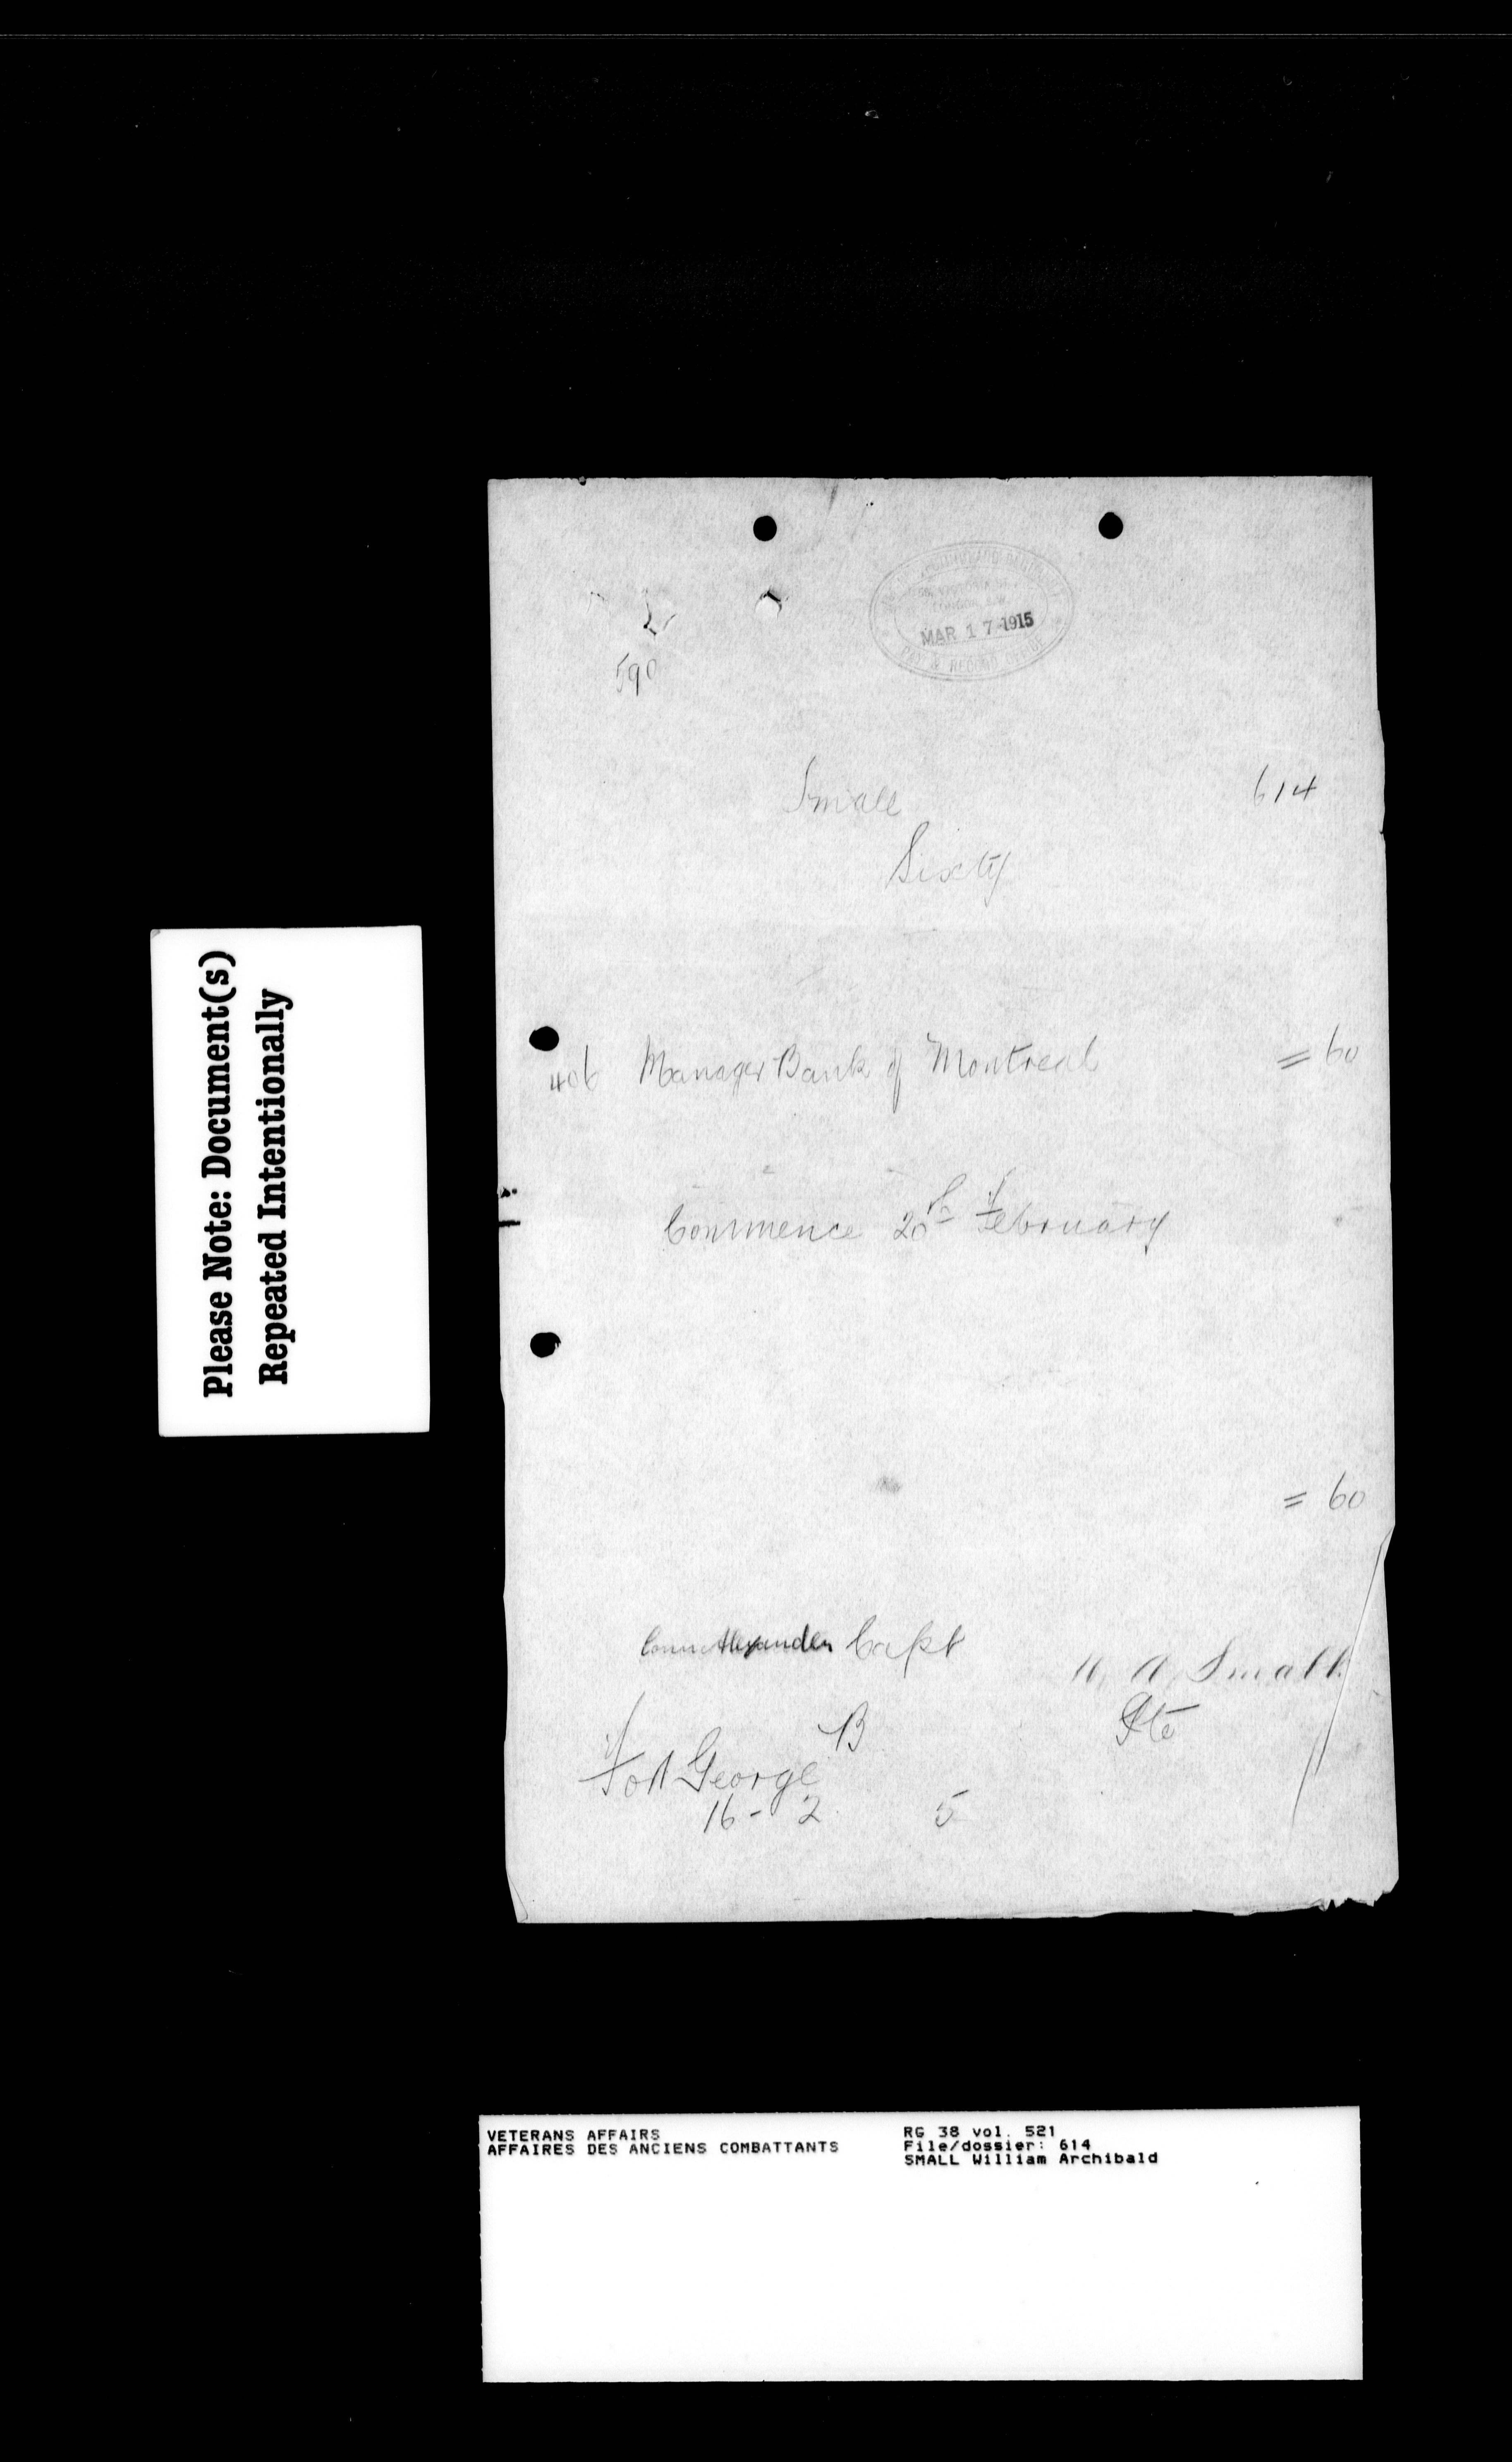 Please Note: Document(s)
Repeated Intentionally
MAR 17 1915
PAY & RECORD OFFICE
590
Small 614
Sixty
406 Manager Bank of Montreal = 60
Commence 20th February
= 60
Alexander Capt
W. A. Small
Pte
B
Fort George
16 - 2 5
VETERANS AFFAIRS
AFFAIRES DES ANCIENS COMBATTANTS
RG 38 vol. 521
File/dossier: 614
SMALL William Archibald